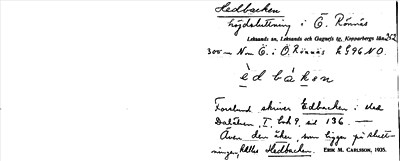 Hedbacken
höjdsluttning i Ö. Rönnäs
Leksands sn, Leksands och Gagnefs tg, Kopparbergs län. 252
300 m N om Ö. i Ö. Rönnäs R 596 N O.
èdbáken
Forslund skriver Edbacken i Med
Dalälven, I, bok 9, sid 136. —
Även den åker, som ligger på slutt-
ningen, kallas Hedbacken. ERIK M. CARLSSON, 1935.